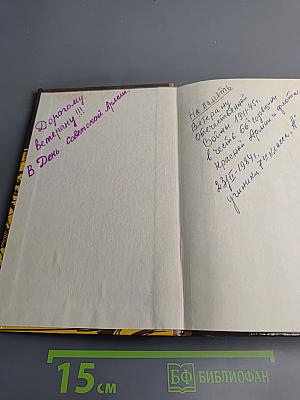 Дорогому
ветерану!!!
В День Советской Армии.
На память
Ветерану
Отечественной
Войны 1941-45г.
в честь 66 годовщины
Красной Армии и флота
23/II-1984г.
ученики 7го класса.
15 см
БФ БИБЛИОФАН